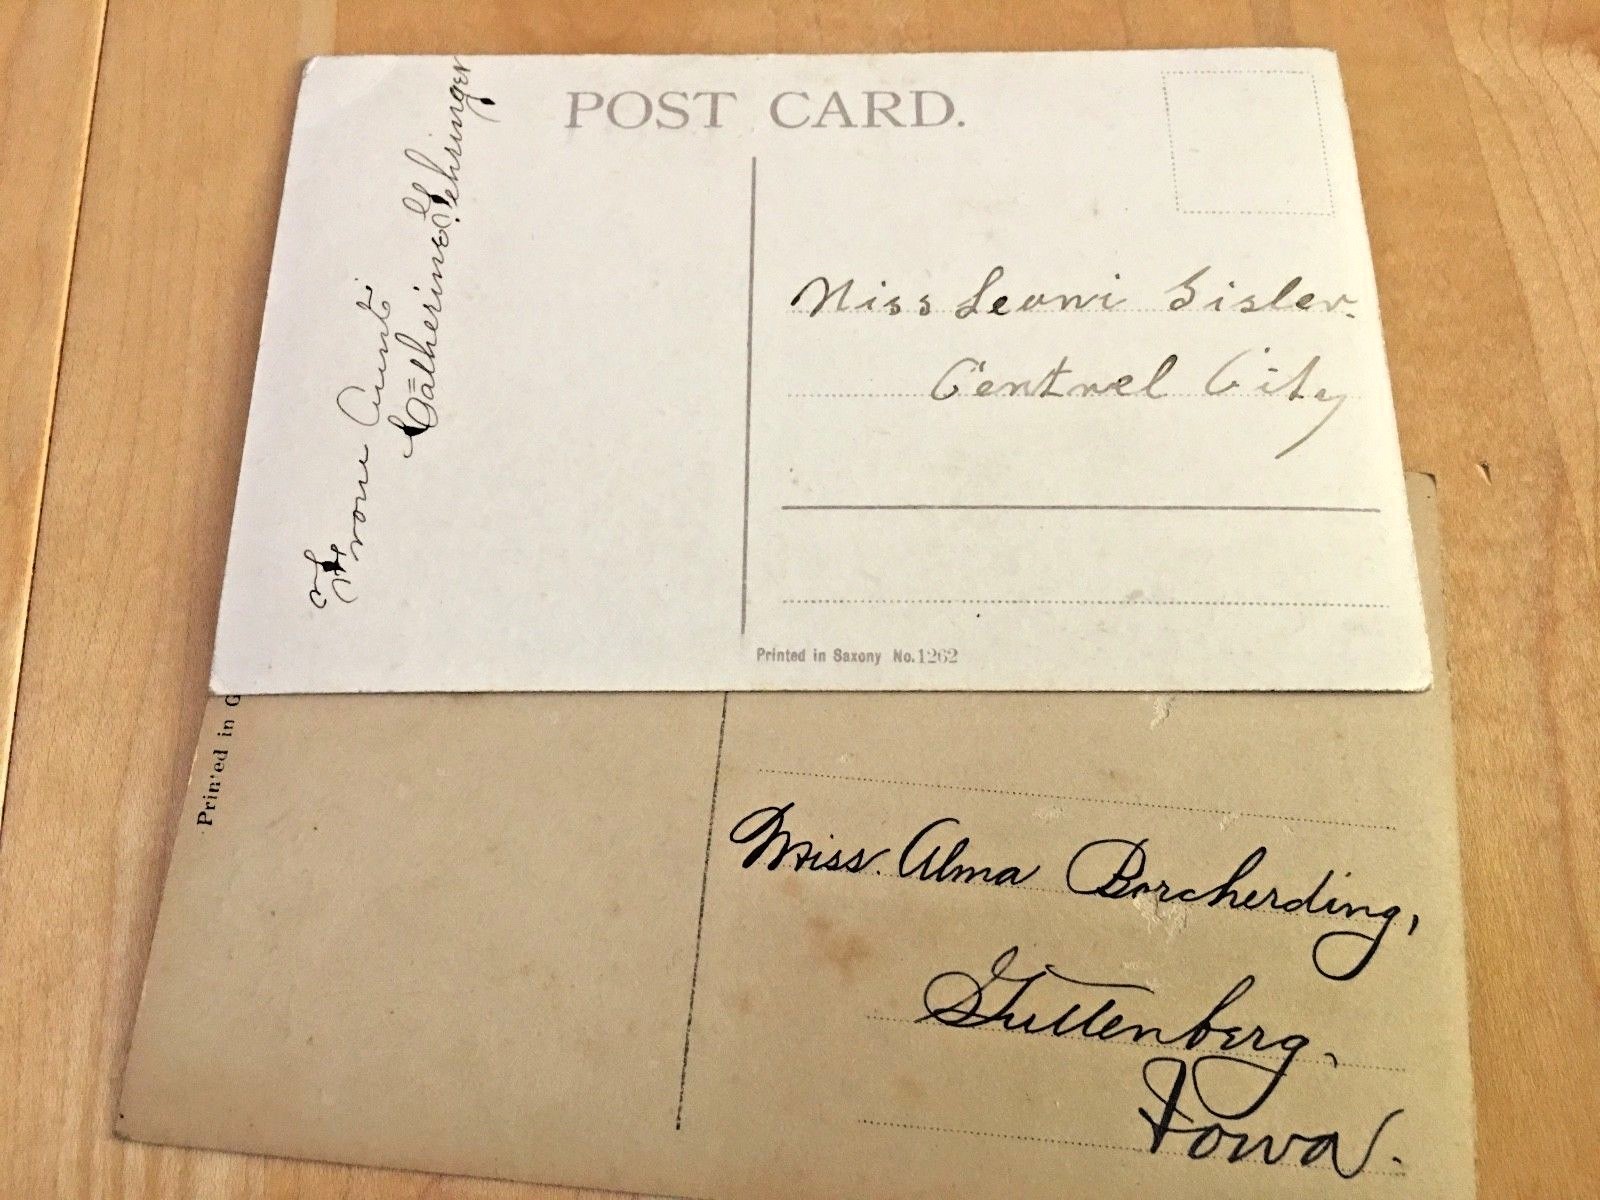 POST CARD.
From Aunt
Catherine Gehringer
Miss Leoni Sisler.
Centrel City
Printed in Saxony No.1262
Printed in G
Miss. Alma Borcherding,
Guttenberg,
Iowa.